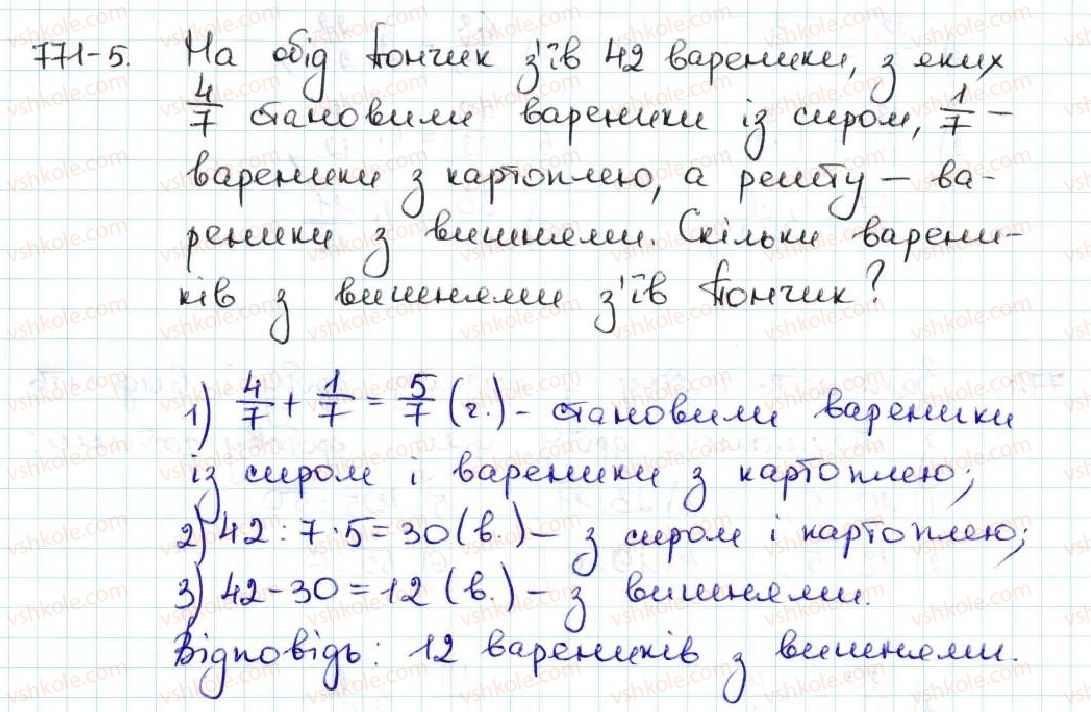 771-5. На обід Пончик з'їв 42 вареники, з яких
4/7 становили вареники із сиром, 1/7 –
вареники з картоплею, а решту – ва-
реники з вишнями. Скільки варени-
ків з вишнями з'їв Пончик?
1) 4/7 + 1/7 = 5/7 (г.) - становили вареники
із сиром і вареники з картоплею;
2) 42 : 7 · 5 = 30 (в.) – з сиром і картоплею;
3) 42 - 30 = 12 (в.) – з вишнями.
Відповідь: 12 вареників з вишнями.